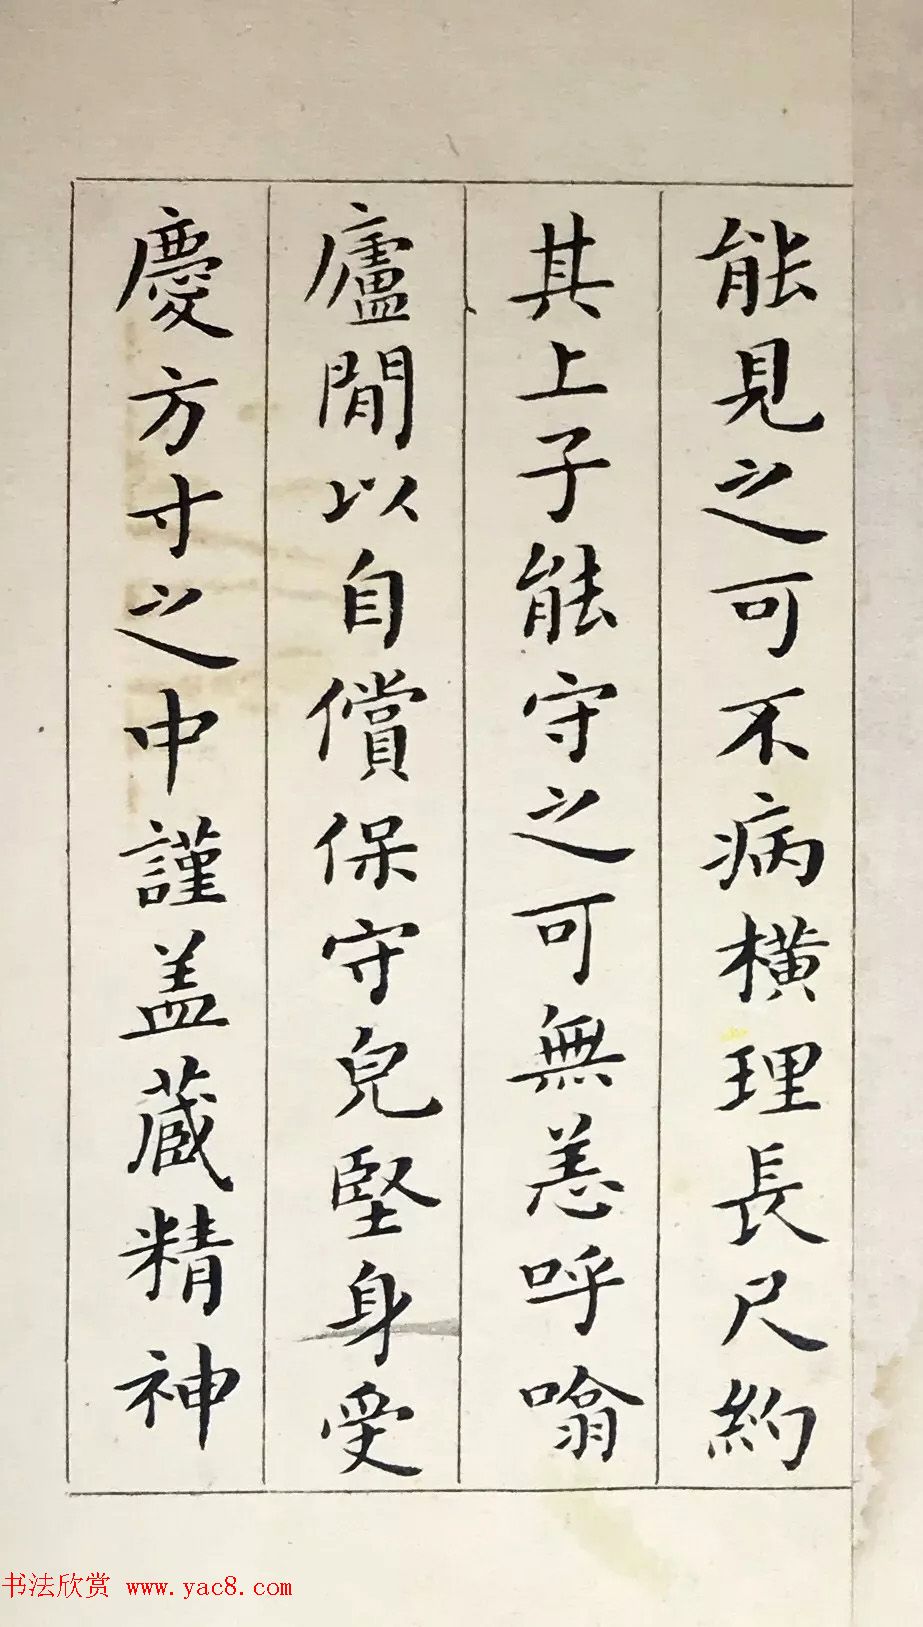 能見之可不病橫理長尺約
其上子能守之可無恙呼噏
廬間以自償保守皃堅身受
慶方寸之中謹盖蔵精神
书法欣赏 www.yac8.com